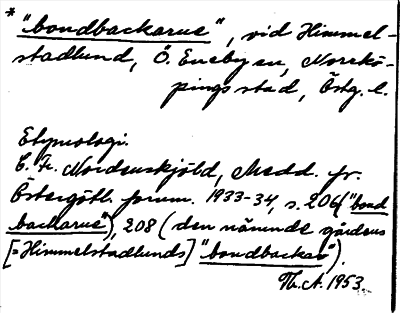 * "bondbackarne", vid Himmel-
stadlund, Ö. Eneby sn, Norrkö-
pings stad, Östg. l.
Etymologi.
C. Fr. Nordenskjöld, Medd. fr.
Östergötl. fornm. 1933-34, s. 206 ("bond
backarne"), 208 (den nämnde gårdens
[=Himmelstadlunds] "bondbacker").
Th. A. 1953